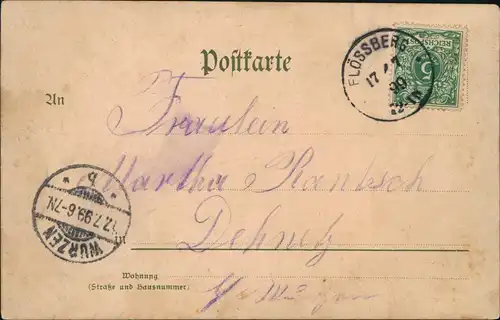 Postkarte
FLÖSSBERG
17 7
99
REICHSPOST
5
An
Fräulein
Martha Rantzsch
WURZEN
17.7.99.6-7N.
* b *
in
Dehnitz
Wohnung
(Straße und Hausnummer)
b/ Wurzen